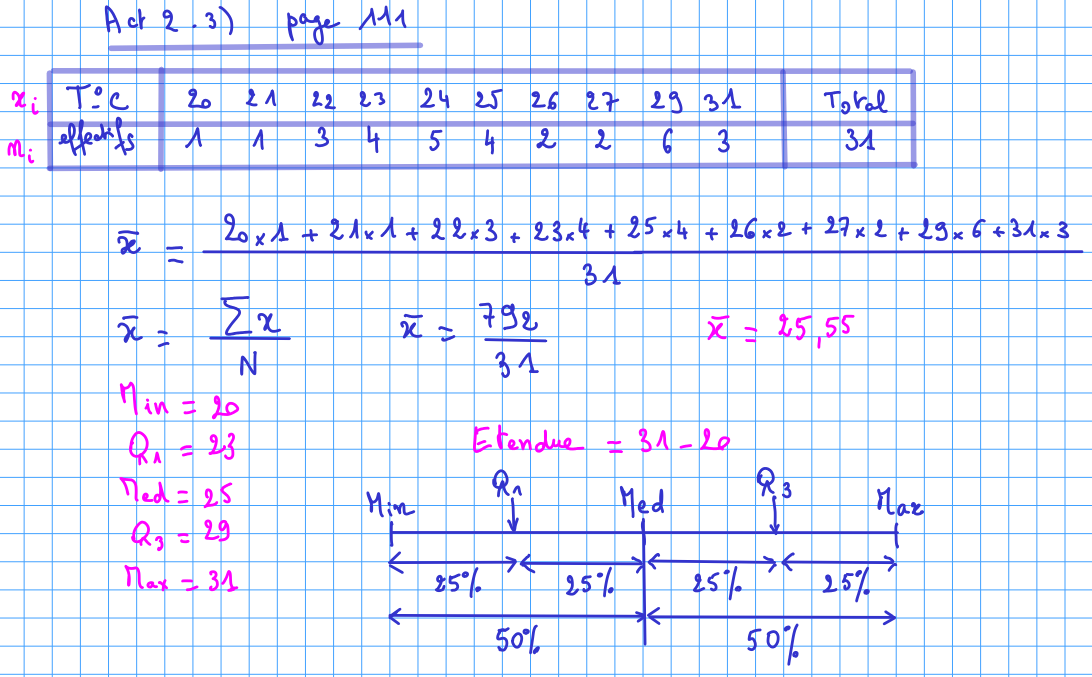 Act 2.3) page 111
xi T°C 20 21 22 23 24 25 26 27 29 31 Total
ni effectifs 1 1 3 4 5 4 2 2 6 3 31
x̄ = (20×1 + 21×1 + 22×3 + 23×4 + 25×4 + 26×2 + 27×2 + 29×6 + 31×3) / 31
x̄ = Σx / N x̄ = 792 / 31 x̄ = 25,55
Min = 20
Q1 = 23 Etendue = 31 - 20
Med = 25
Q3 = 29
Max = 31
Min Q1 Med Q3 Max
25% 25% 25% 25%
50% 50%